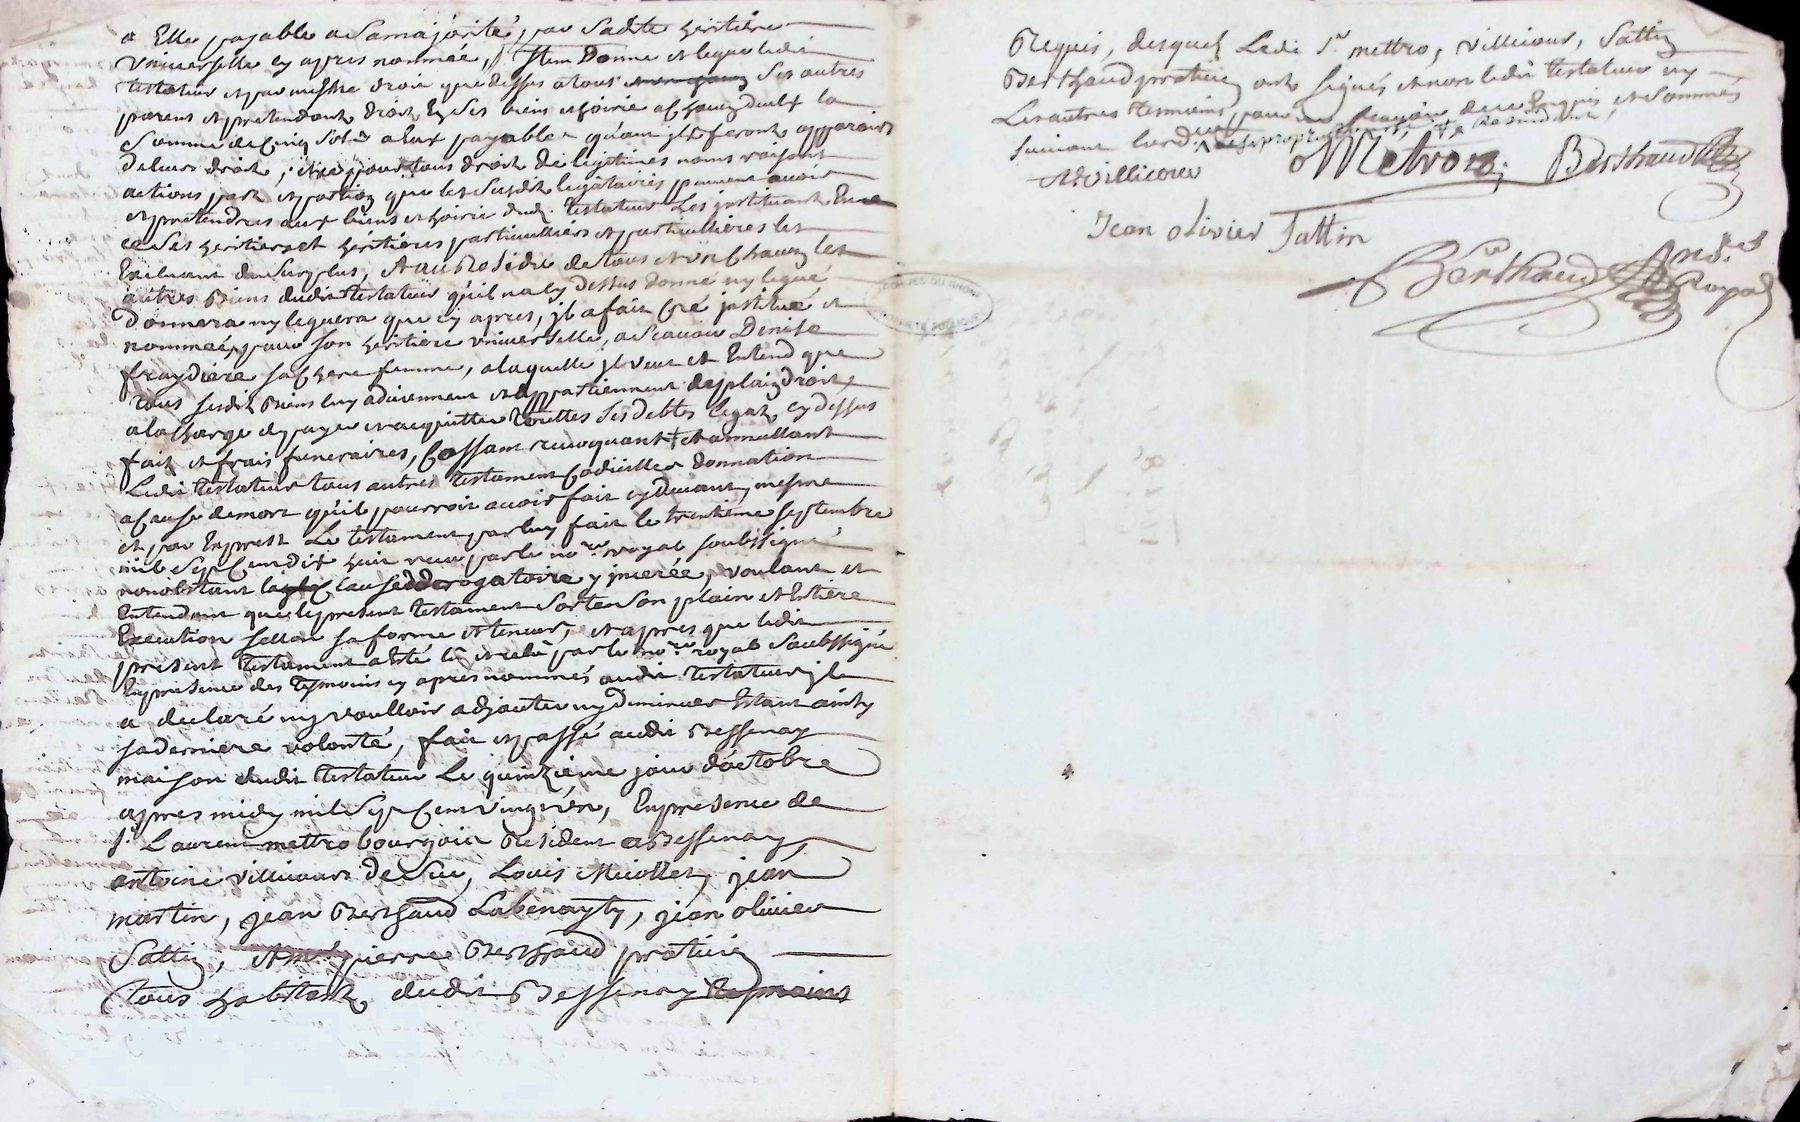 a Elle payable a sa majorité, par sadite heritiere
universelle cy apres nommée, Item Donne et legue ledit
testateur et par mesme droit que dessus a tous ses autres
parens et pretendants droit En ses biens et hoirie a chacun d'eux la
somme de Cinq Sols a Eux payable quant ils feront apparoir
de leurs droits, et ce pour tous droits de legitimes noms raisons
actions part et portion que les susdits legataires peuvent avoir
et pretendre aux biens et hoirie dud. testateur Les instituant En ce
ce ses heritiers et héritieres particulliers et particullieres les
Excluant du surplus, Et au Residu de tous et un chacun les
autres Biens dudit testateur qu'il n'a cy dessus donné ny legué
Donnera ny leguera que cy apres, il a fait Créé institué et
nommée, pour son heritiere universelle, a scavoir Denise
fraydiere sa chere femme, a laquelle il veut et Entend que
tous susdits Biens luy adviennent et appartiennent de plain droit
a la charge de payer et acquitter touttes ses debtes legats cy dessus
fait et frais funeraires, Cassant revoquant et annullant
Ledit testateur tous autres testament Codicilles donnation
a cause de mort qu'il pourroit avoir fait cy devant, mesme
et par Exprest Le testament par luy fait le trentieme septembre
mil sept Cent dix huit receu par le no.re royal soubsigné
nonobstant la clause derogatoire y inserée, voulant et
Entendant que le present testament sorte son plain et Entiere
Execution sellon sa forme et teneur, et apres que ledit
present testament a Eté lû et relû par le no.re royal Soubssigné
En presence des tesmoins cy apres nommés audit testateur il
a declaré ny voulloir adjouter ny diminuer Estant ainsy
sa derniere volonté, fait et passé audit Bessenay
maison dudit testateur Le quinzieme jour d'octobre
apres midy mil Sept Cent vingt un, En presence de
s.r Laurent mettro bourgois Resident a Bessenay
antoine villicour de Sue, Louis Micollet, jean
martin, jean Berthaud Labenayty, jean olivier
Sattin, pierre Berthaud praticien
tous habitants dudit Bessenay tesmoins
Requis, desquels Ledit s.r mettro, villicour, Sattin
Berthaud praticien ont signés et non ledit testateur ny
Les autres tesmoins pour ne scavoir de ce Enquis et sommés
suivant l'ord.ce
A. villicour Metroz Berthaud
Jean olivier Sattin
Berthaud No.re Royal